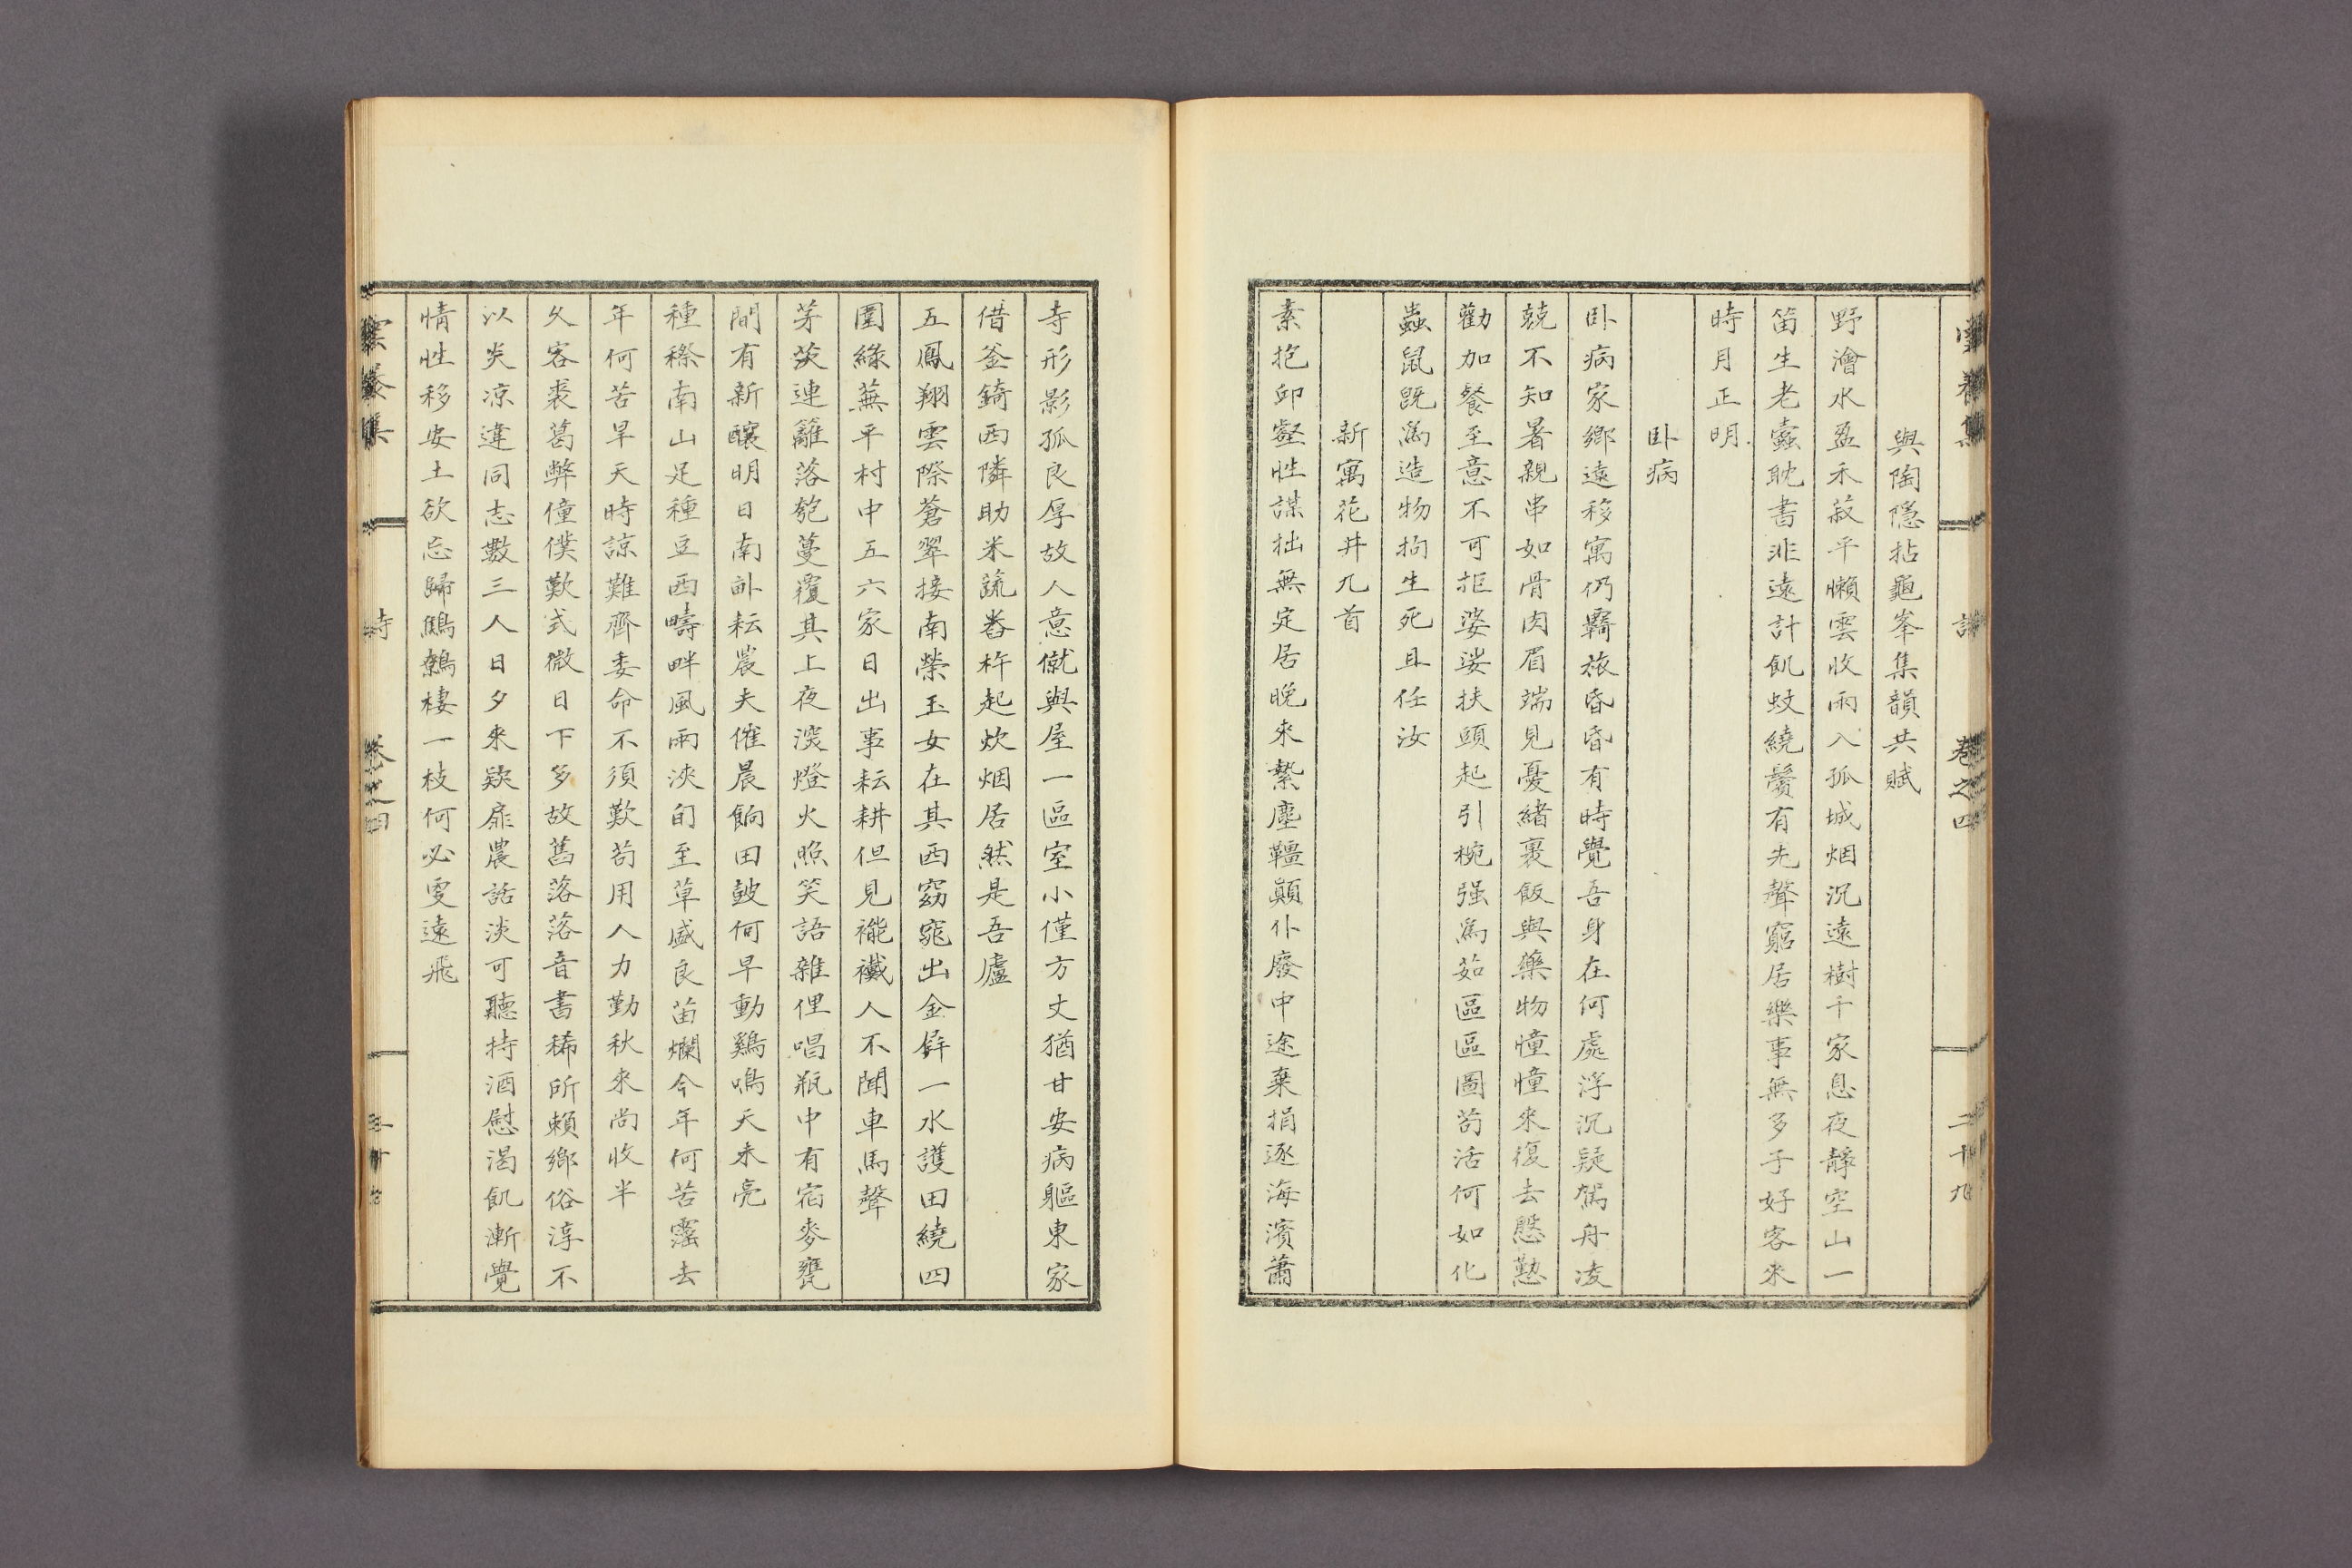 詩
卷之四
二十九
與陶隱拈龜峯集韻共賦
野澮水盈禾菽平懶雲收雨入孤城烟沉遠樹千家息夜靜空山一
笛生老蠹耽書非遠計飢蚊繞鬢有先聲窮居樂事無多子好客來
時月正明
卧病
卧病家鄉遠移寓仍羇旅昏昏有時覺吾身在何處浮沉疑駕舟凌
兢不知暑親串如骨肉眉端見憂緖裹飯與藥物憧憧來復去慇懃
勸加餐至意不可拒婆娑扶頭起引椀强爲茹區區圖苟活何如化
蟲鼠旣爲造物拘生死且任汝
新寓花井九首
素抱邱壑性謀拙無定居晚來縶塵韁顚仆廢中途棄捐逐海濱蕭
寺形影孤良厚故人意僦與屋一區室小僅方丈猶甘安病軀東家
借釜錡西隣助米蔬畚杵起炊烟居然是吾廬
五鳳翔雲際蒼翠接南榮玉女在其西窈窕出金屛一水護田繞四
圍綠蕪平村中五六家日出事耘耕但見褦襶人不聞車馬聲
茅茨連籬落匏蔓覆其上夜深燈火照笑語雜俚唱瓶中有宿麥甕
間有新釀明日南畝耘農夫催晨餉田鼓何早動鷄鳴天未亮
種穄南山足種豆西疇畔風雨浹旬至草盛良苗爛今年何苦霪去
年何苦旱天時諒難齊委命不須歎苟用人力勤秋來尚收半
久客裘葛弊僮僕歎式微日下多故舊落落音書稀所賴鄉俗淳不
以炎凉違同志數三人日夕來欵扉農話淡可聽持酒慰渴飢漸覺
情性移安土欲忘歸鷦鷯棲一枝何必更遠飛
詩
卷之四